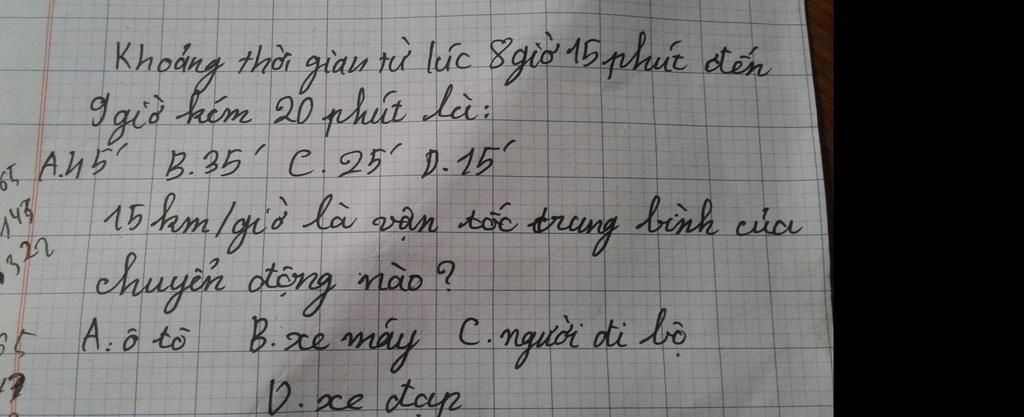 Khoảng thời gian từ lúc 8 giờ 15 phút đến
9 giờ kém 20 phút là:
A. 45' B. 35' C. 25' D. 15'
15 km/giờ là vận tốc trung bình của
chuyển động nào?
A. ô tô B. xe máy C. người đi bộ
D. xe đạp